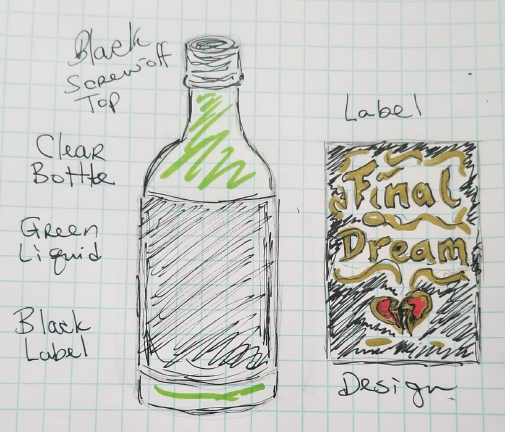 Black
Screw off
Top
Clear
Bottle
Green
Liquid
Black
Label
Label
Final
Dream
Design